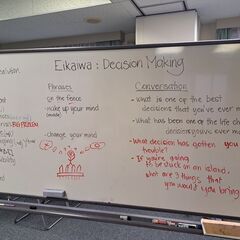 Eikaiwa: Decision Making
Phrases
- on the fence
- make up your mind
- change your mind
Conversation
- what is one of the best
decisions that you've ever
- What has been one of the life
decisions you've ever
- What decision has gotten you
trouble?
- If you're going
to be stuck on an island,
what are 3 things that
you would you bring